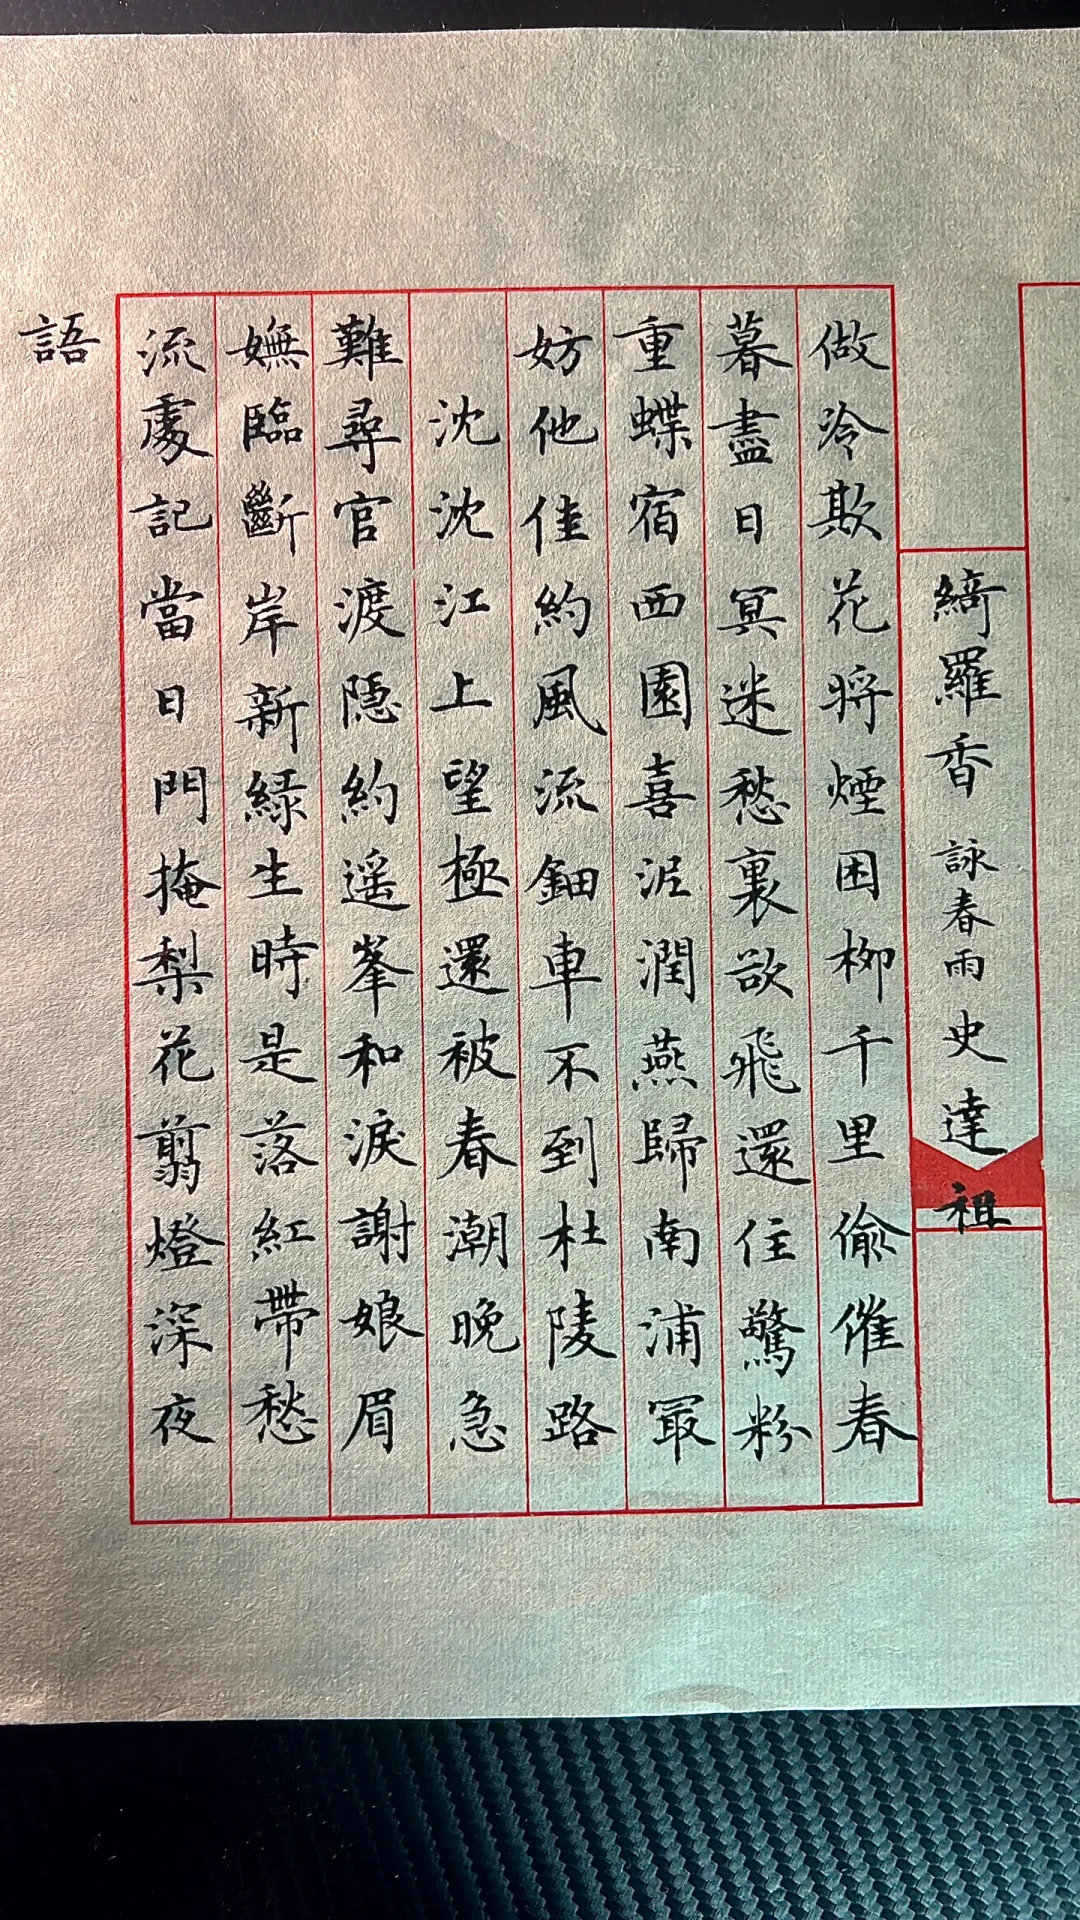 綺羅香 詠春雨 史達祖
做冷欺花將煙困柳千里偷催春
暮盡日冥迷愁裏欲飛還住驚粉
重蝶宿西園喜泥潤燕歸南浦冣
妨他佳約風流鈿車不到杜陵路
沈沈江上望極還被春潮晚急
難尋官渡隱約遥峯和淚謝娘眉
嫵臨斷岸新綠生時是落紅帶愁
流處記當日門掩梨花翦燈深夜
語